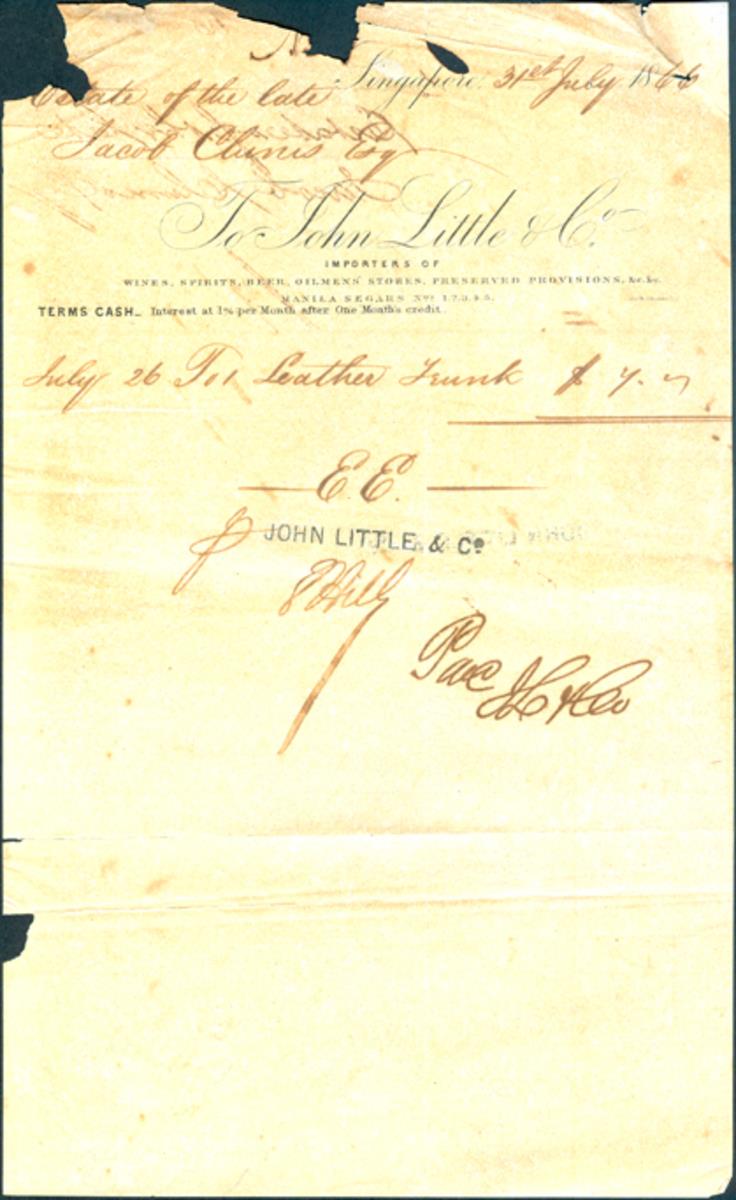 Singapore 31st July 1866
Estate of the late
Jacob Clunis Esq
To John Little & Co.
IMPORTERS OF
WINES, SPIRITS, BEER, OILMENS' STORES, PRESERVED PROVISIONS, &c. &c.
MANILA SEGARS Nos. 1.2.3.4.5.
TERMS CASH_ Interest at 1% per Month after One Month's credit.
July 26 To 1 Leather Trunk $ 7. "
E. E.
JOHN LITTLE, & Co